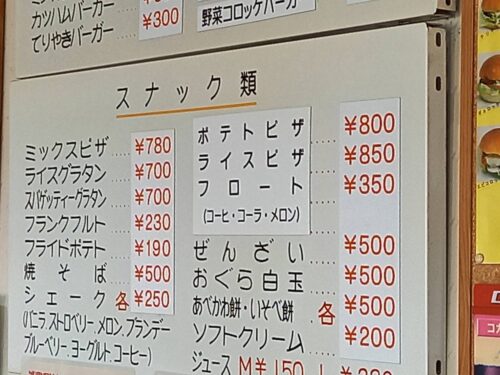 カツハムバーガー
¥300
てりやきバーガー
野菜コロッケバーガー
スナック類
ミックスピザ ¥780
ライスグラタン ¥700
スパゲッティーグラタン ¥700
フランクフルト ¥230
フライドポテト ¥190
焼そば ¥500
シェーク 各 ¥250
(バニラ、ストロベリー、メロン、ブランデー
ブルーベリー、ヨーグルト、コーヒー)
ポテトピザ ¥800
ライスピザ ¥850
フロート ¥350
(コーヒ・コーラ・メロン)
ぜんざい ¥500
おぐら白玉 ¥500
あべかわ餅・いそべ餅 各 ¥500
ソフトクリーム ¥200
ジュース M¥150